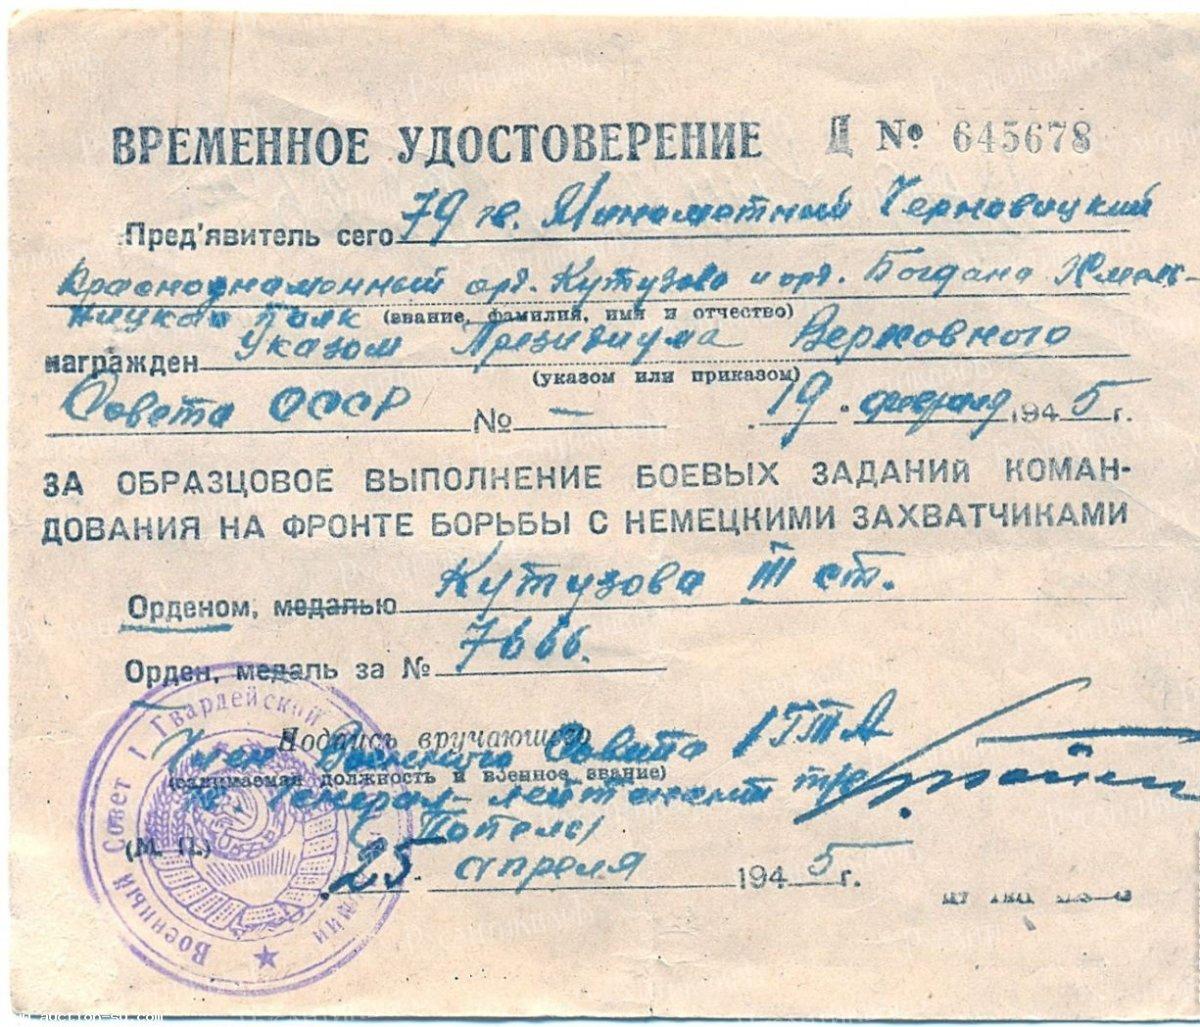 ВРЕМЕННОЕ УДОСТОВЕРЕНИЕ Д № 645678
Пред'явитель сего 79 гв. Минометный Черновицкий
Краснознаменный орд. Кутузова и орд. Богдана Хмель-
ницкого полк (звание, фамилия, имя и отчество)
награжден Указом Президиума Верховного
(указом или приказом)
Совета СССР № — 19 февраля 1945 г.
ЗА ОБРАЗЦОВОЕ ВЫПОЛНЕНИЕ БОЕВЫХ ЗАДАНИЙ КОМАН-
ДОВАНИЯ НА ФРОНТЕ БОРЬБЫ С НЕМЕЦКИМИ ЗАХВАТЧИКАМИ
Орденом, медалью Кутузова III ст.
Орден, медаль за № 7666.
Подпись вручающего
Член Военного Совета 1 ГТА
(занимаемая должность и военное звание)
Генерал-лейтенант т/в
Попель
(М. П.) 25 апреля 1945 г.
Военный Совет 1 Гвардейской армии
auction-su.com